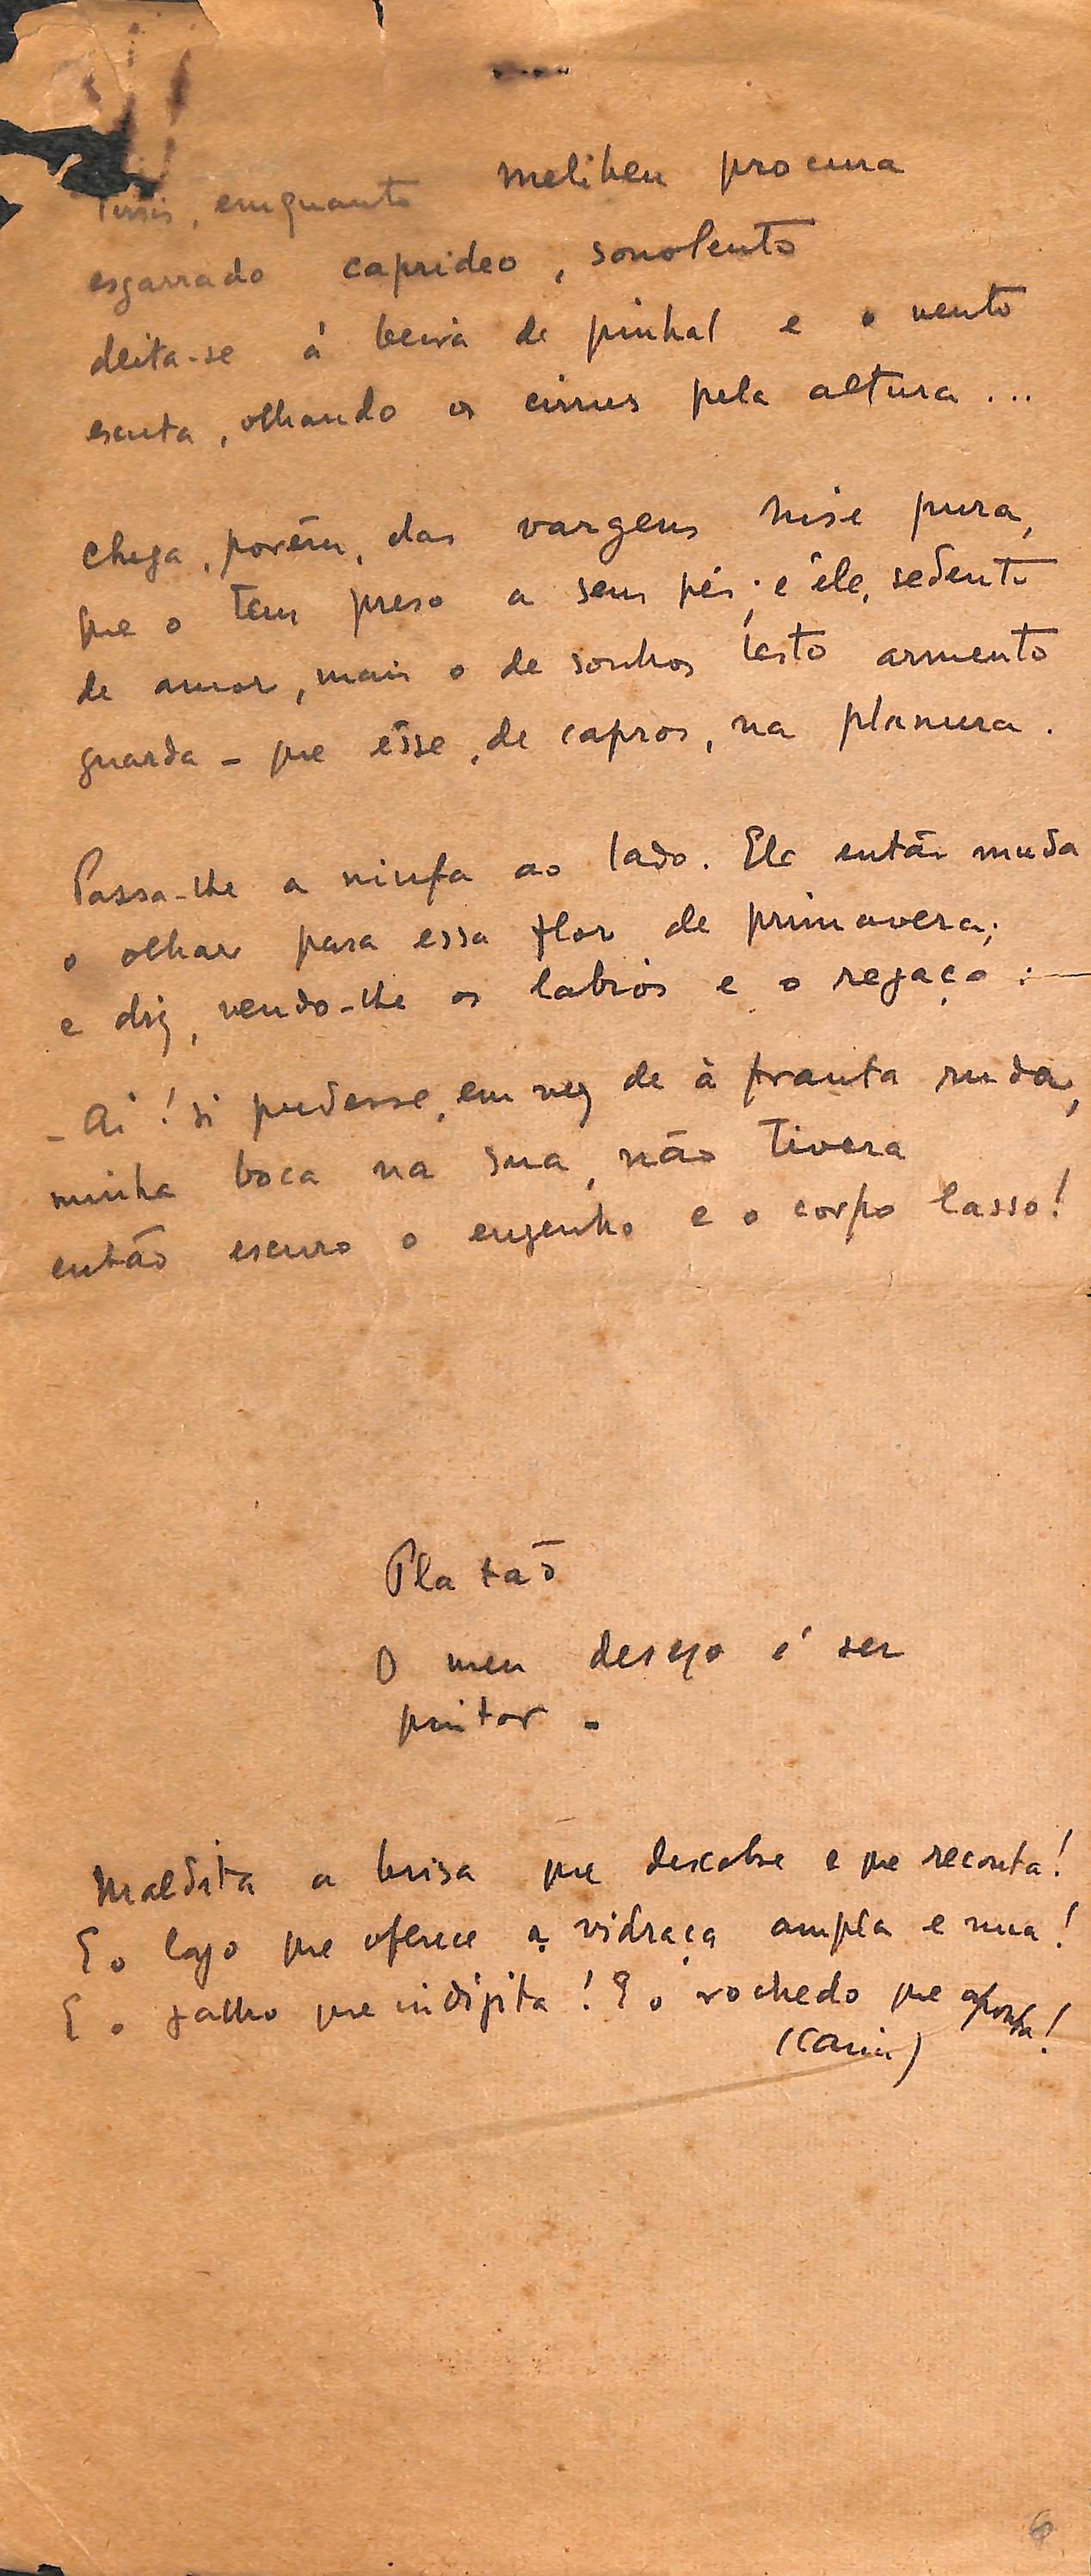 Tirsis, emquanto Melibeu procura
esgarrado caprideo, sonolento
deita-se á beira de pinhal e o vento
escuta, olhando os cirrus pela altura...
Chega, porêm, das vargens Nise pura,
que o tem preso a seus pés; e êle, sedento
de amor, mais o de sonhos lesto armento
guarda - que êsse, de capros, na planura.
Passa-lhe a ninfa ao lado. Ele então muda
o olhar para essa flor de primavera;
e diz, vendo-lhe os labios e o regaço: —
- Ai! si pudesse, em vez de à frauta ruda,
minha boca na sua, não tivera
então escuro o engenho e o corpo lasso!
Platão
O meu desejo é ser
pintor -
Maldita a brisa que descobre e que reconta!
E o lago que oferece a vidraça ampla e nua!
E o galho que indigita! E o rochedo que aponta!
(Caim)
6